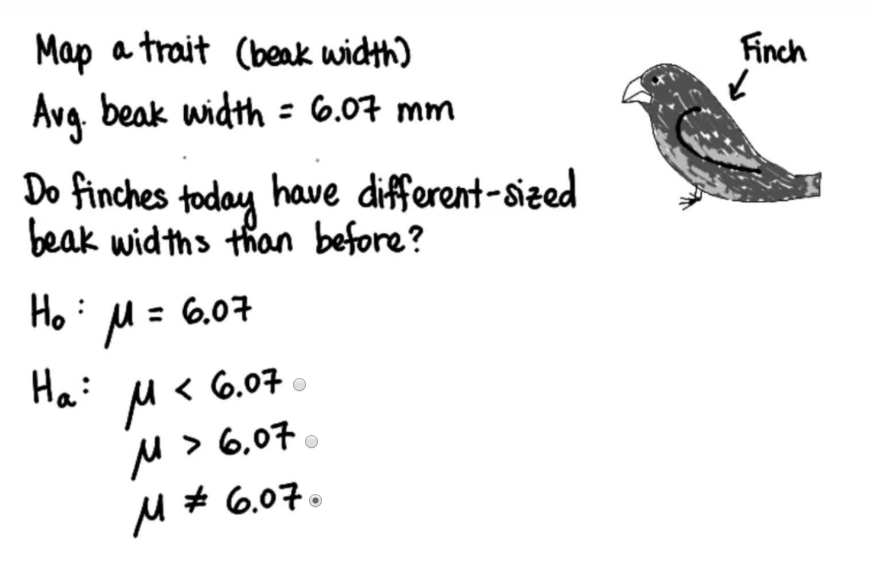 Map a trait (beak width)
Finch
Avg. beak width = 6.07 mm
Do finches today have different-sized
beak widths than before?
H₀: μ = 6.07
Hₐ: μ < 6.07
μ > 6.07
μ ≠ 6.07